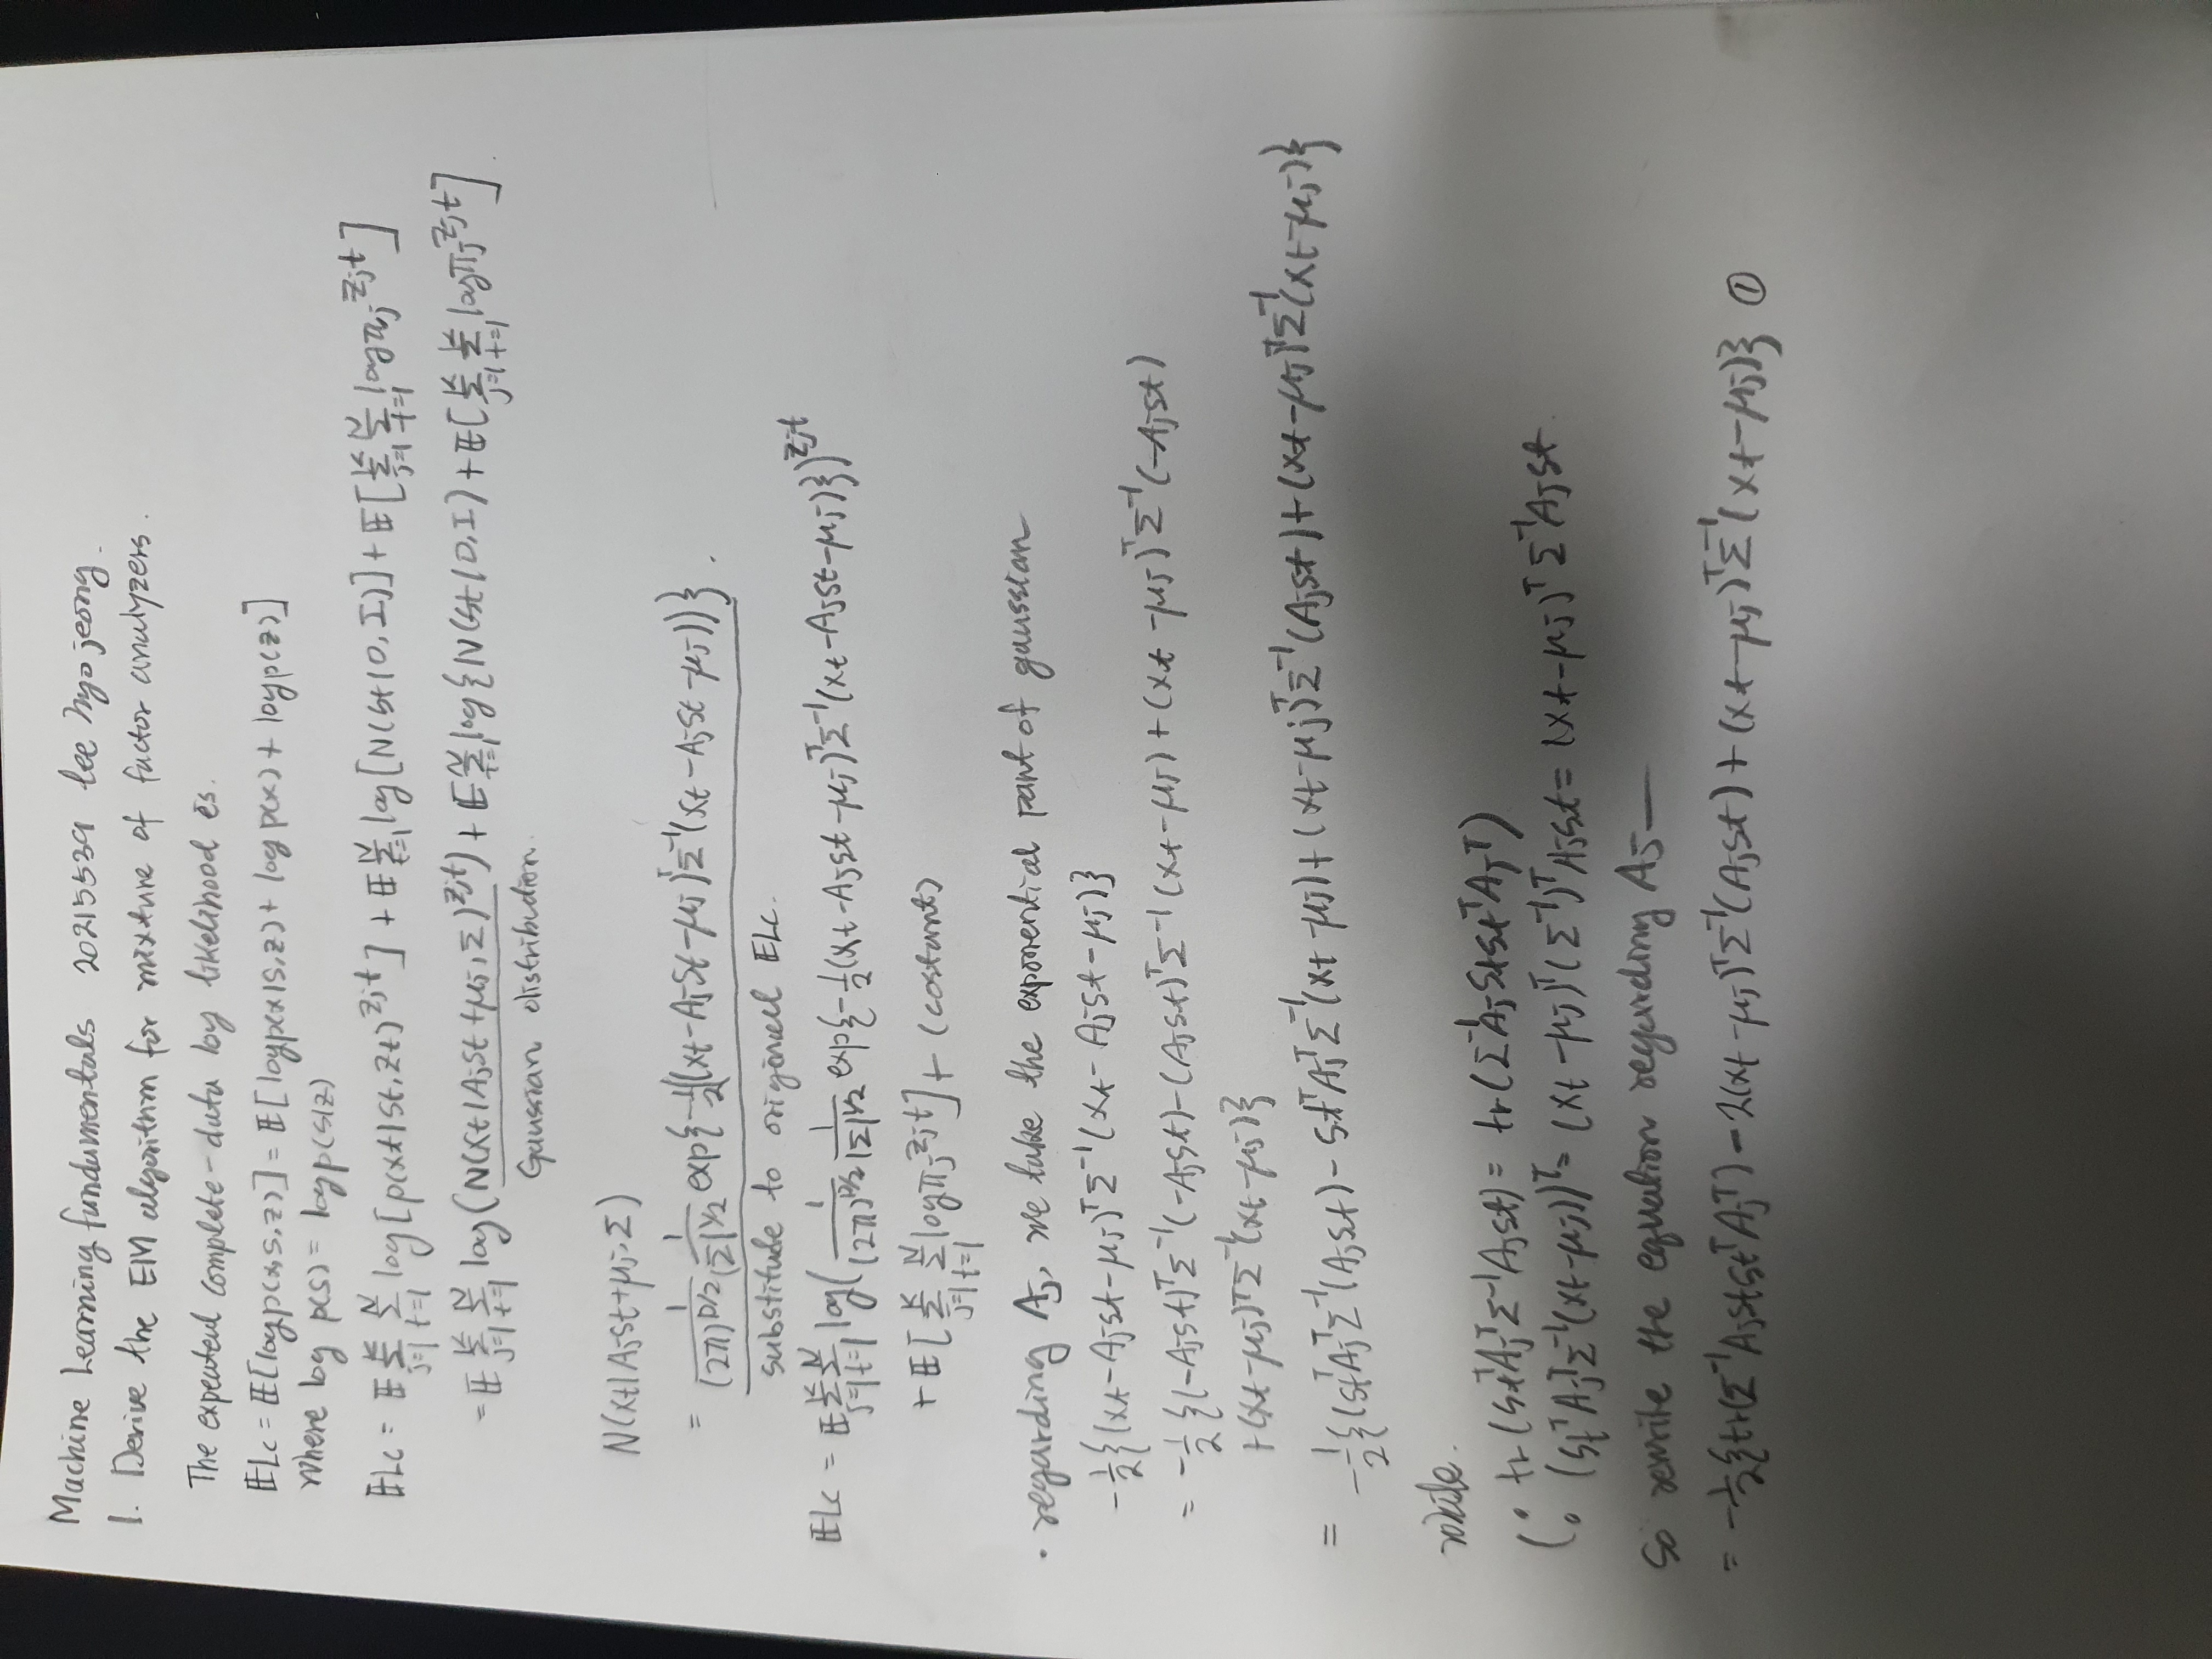 Machine Learning fundamentals 20215539 lee hyo jeong.
1. Derive the EM algorithm for mixture of factor analyzers.
The expected complete-data log likelihood is.
𝔼Lc = 𝔼[logp(x,s,z)] = 𝔼[logp(x|s,z) + log p(x) + logp(z)]
where log p(s) = logp(s|z)
𝔼Lc = 𝔼 Σ_{j=1}^{K} Σ_{t=1}^{N} log[p(xt|st,zt)^{zjt}] + 𝔼 Σ_{t=1}^{N} log[N(st|0,I)] + 𝔼[Σ_{j=1}^{K} Σ_{t=1}^{N} logπj^{zjt}]
= 𝔼 Σ_{j=1}^{K} Σ_{t=1}^{N} log(N(xt|Ajst+μj,Σ)^{zjt}) + 𝔼 Σ_{t=1}^{N} log{N(st|0,I) + 𝔼[Σ_{j=1}^{K} Σ_{t=1}^{K} logπj^{zjt}].
Gaussian distribution.
N(xt|Ajst+μj,Σ)
= 1/(2π)^{D/2} 1/|Σ|^{1/2} exp{-1/2((xt-Ajst-μj)^TΣ^{-1}(xt-Ajst-μj))}.
substitude to originall 𝔼Lc.
𝔼Lc = 𝔼 Σ_{j=1}^{K} Σ_{t=1}^{N} log(1/(2π)^{D/2} 1/|Σ|^{1/2} exp{-1/2(xt-Ajst-μj)^TΣ^{-1}(xt-Ajst-μj)})^{zjt}
+ 𝔼[Σ_{j=1}^{K} Σ_{t=1}^{N} logπj^{zjt}] + (costant)
· regarding Aj, we take the exponential part of gaussian
-1/2{(xt-Ajst-μj)^TΣ^{-1}(xt-Ajst-μj)}
= -1/2{(-Ajst)^TΣ^{-1}(-Ajst)-(Ajst)^TΣ^{-1}(xt-μj)+(xt-μj)^TΣ^{-1}(-Ajst)
+(xt-μj)^TΣ^{-1}(xt-μj)}
= -1/2{(st^TAj^TΣ^{-1}(Ajst)-st^TAj^TΣ^{-1}(xt-μj)+(xt-μj)^TΣ^{-1}(Ajst)+(xt-μj)^TΣ^{-1}(xt-μj)}
while.
( • tr(st^TAj^TΣ^{-1}Ajst) = tr(Σ^{-1}Ajstst^TAj^T)
• (st^TAj^TΣ^{-1}(xt-μj))^T = (xt-μj)^T(Σ^{-1})^TAjst = (xt-μj)^TΣ^{-1}Ajst.
So rewrite the equation regarding Aj —
= -1/2{tr(Σ^{-1}Ajstst^TAj^T) - 2(xt-μj)^TΣ^{-1}(Ajst) + (xt-μj)^TΣ^{-1}(xt-μj)} ①